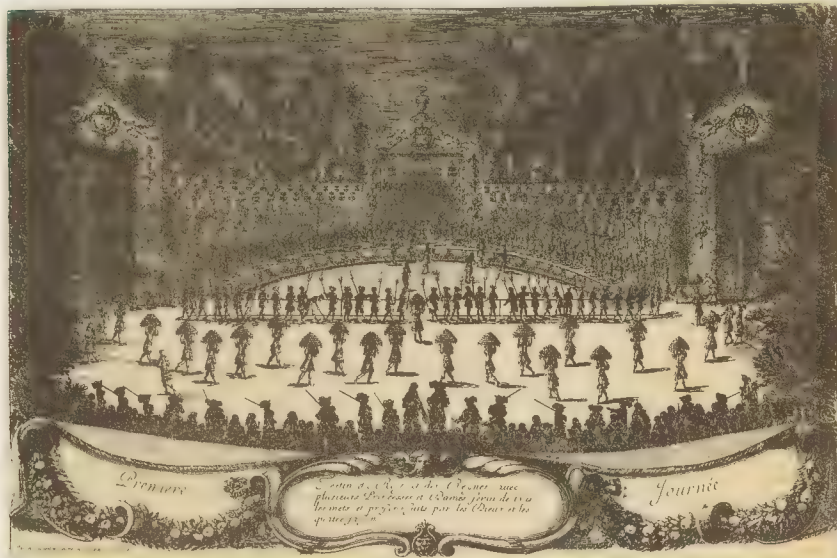 Premiere
Festin du Roy et des Reynes avec
plusieurs Princesses et Dames, servi de tous
les mets et presens faits par les Dieux et les
quatre
Journée